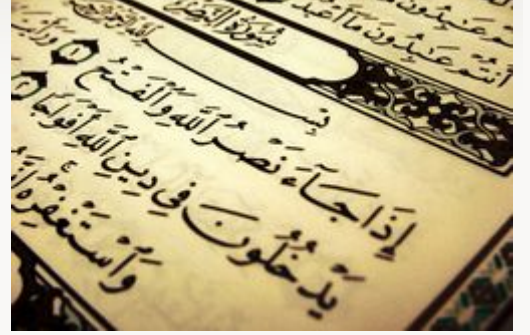 أَنتُمْ عَـٰبِدُونَ مَآ أَعْبُدُ
سُورَةُ النَّصْرِ
بِسْمِ ٱللَّهِ ٱلرَّحْمَـٰنِ ٱلرَّحِيمِ
إِذَا جَآءَ نَصْرُ ٱللَّهِ وَٱلْفَتْحُ ١ وَرَأَيْتَ
يَدْخُلُونَ فِى دِينِ ٱللَّهِ أَفْوَاجًا ٢
وَٱسْتَغْفِرْهُ